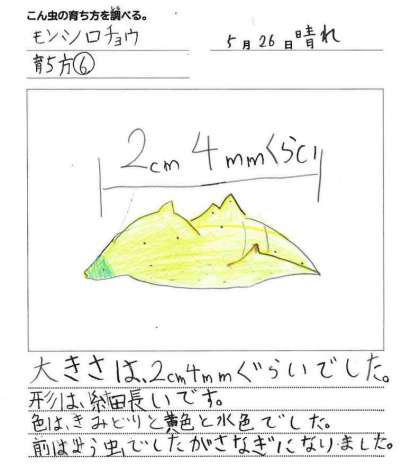 こん虫の育ち方を調べる。
モンシロチョウ
5月26日晴れ
育ち方⑥
2cm4mmくらい
大きさは、2cm4mmぐらいでした。
形は、細長いです。
色は、きみどりと黄色と水色でした。
前はよう虫でしたがさなぎになりました。